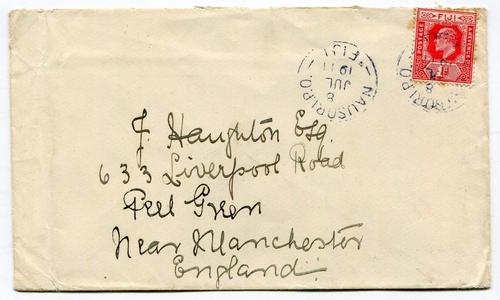 POSTAGE FIJI & REVENUE
1d
NAUSORI P.O.
8
JUL
1911
FIJI
J Haughton Esq.
633 Liverpool Road
Peel Green
Near Manchester
England